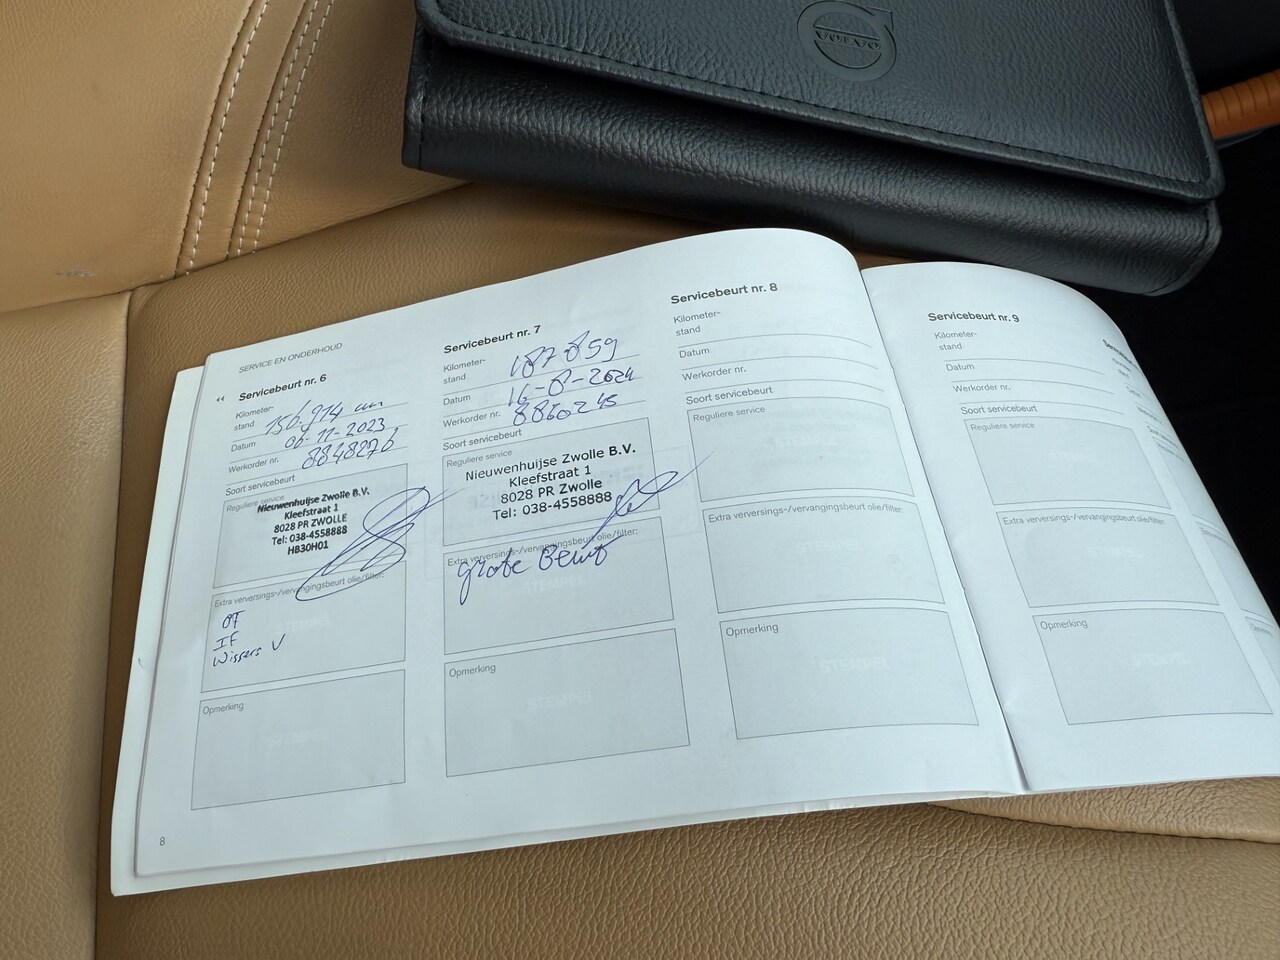 VOLVO
SERVICE EN ONDERHOUD
Servicebeurt nr. 6
Kilometer-
stand 156.914 km
Datum 06-11-2023
Werkorder nr. 8848276
Soort servicebeurt
Reguliere service
Nieuwenhuijse Zwolle B.V.
Kleefstraat 1
8028 PR ZWOLLE
Tel: 038-4558888
HB30H01
Extra verversings-/vervangingsbeurt olie/filter:
OF
IF
Wissers V
Opmerking
STEMPEL
8
Servicebeurt nr. 7
Kilometer-
stand 187859
Datum 16-8-2024
Werkorder nr. 8860245
Soort servicebeurt
Reguliere service
Nieuwenhuijse Zwolle B.V.
Kleefstraat 1
8028 PR Zwolle
Tel: 038-4558888
Extra verversings-/vervangingsbeurt olie/filter:
grote Beurt
Opmerking
STEMPEL
Servicebeurt nr. 8
Kilometer-
stand
Datum
Werkorder nr.
Soort servicebeurt
Reguliere service
STEMPEL
Extra verversings-/vervangingsbeurt olie/filter:
STEMPEL
Opmerking
STEMPEL
Servicebeurt nr. 9
Kilometer-
stand
Datum
Werkorder nr.
Soort servicebeurt
Reguliere service
STEMPEL
Extra verversings-/vervangingsbeurt olie/filter:
STEMPEL
Opmerking
STEMPEL